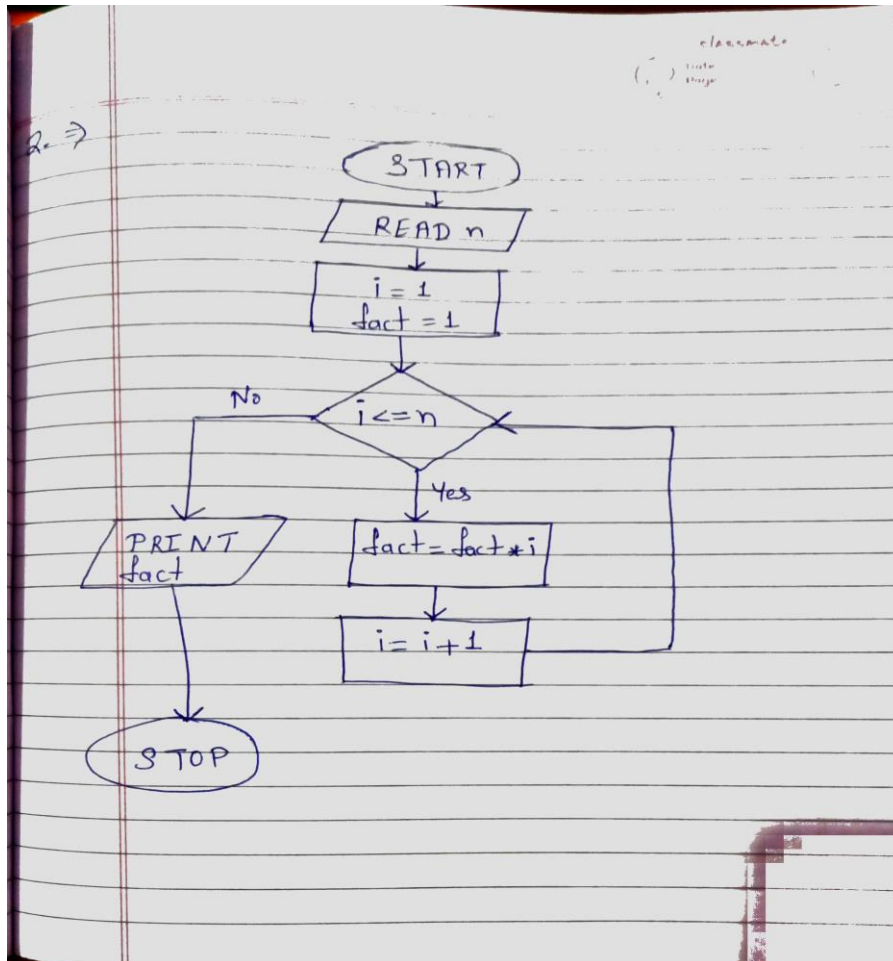 classmate
2. ⇒
START
READ n
i = 1
fact = 1
i <= n
No
Yes
PRINT
fact
fact = fact * i
i = i + 1
STOP